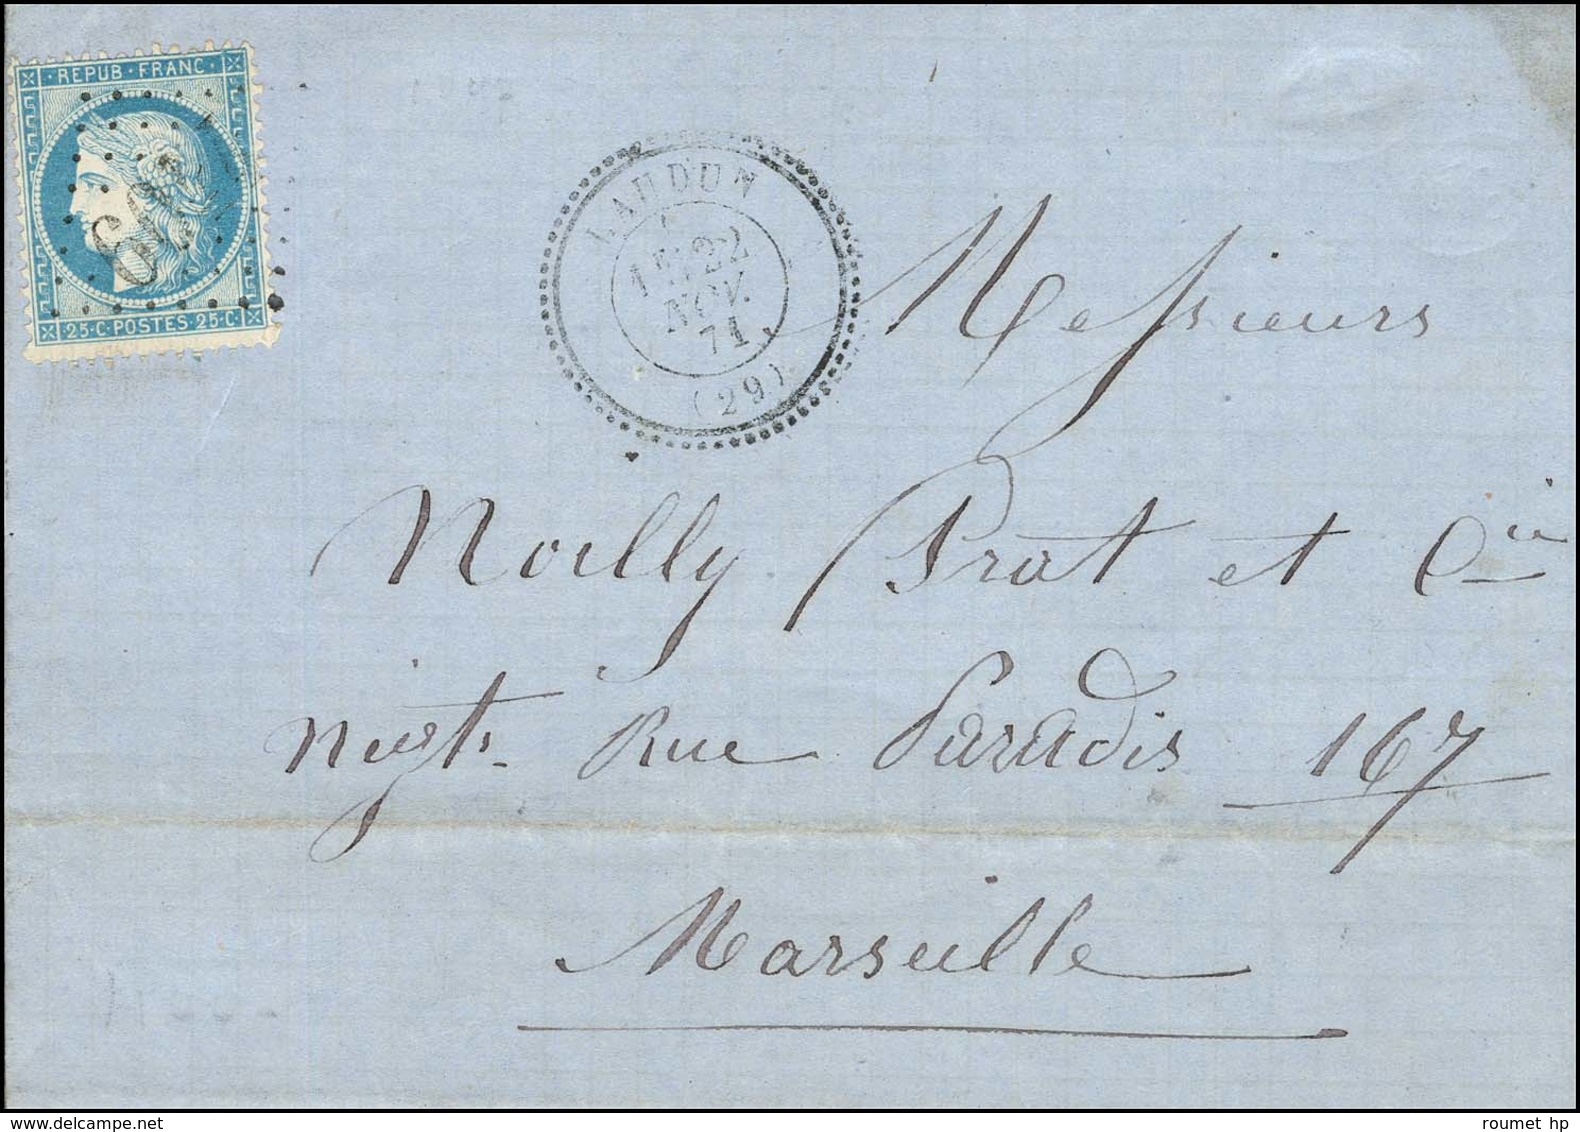 REPUB · FRANC ·
25·C·POSTES·25·C
LAUDUN
1E 22
NOV.
71
(29)
Messieurs
Noilly Prat et Cie
Negts Rue Paradis 167
Marseille
roumet hp